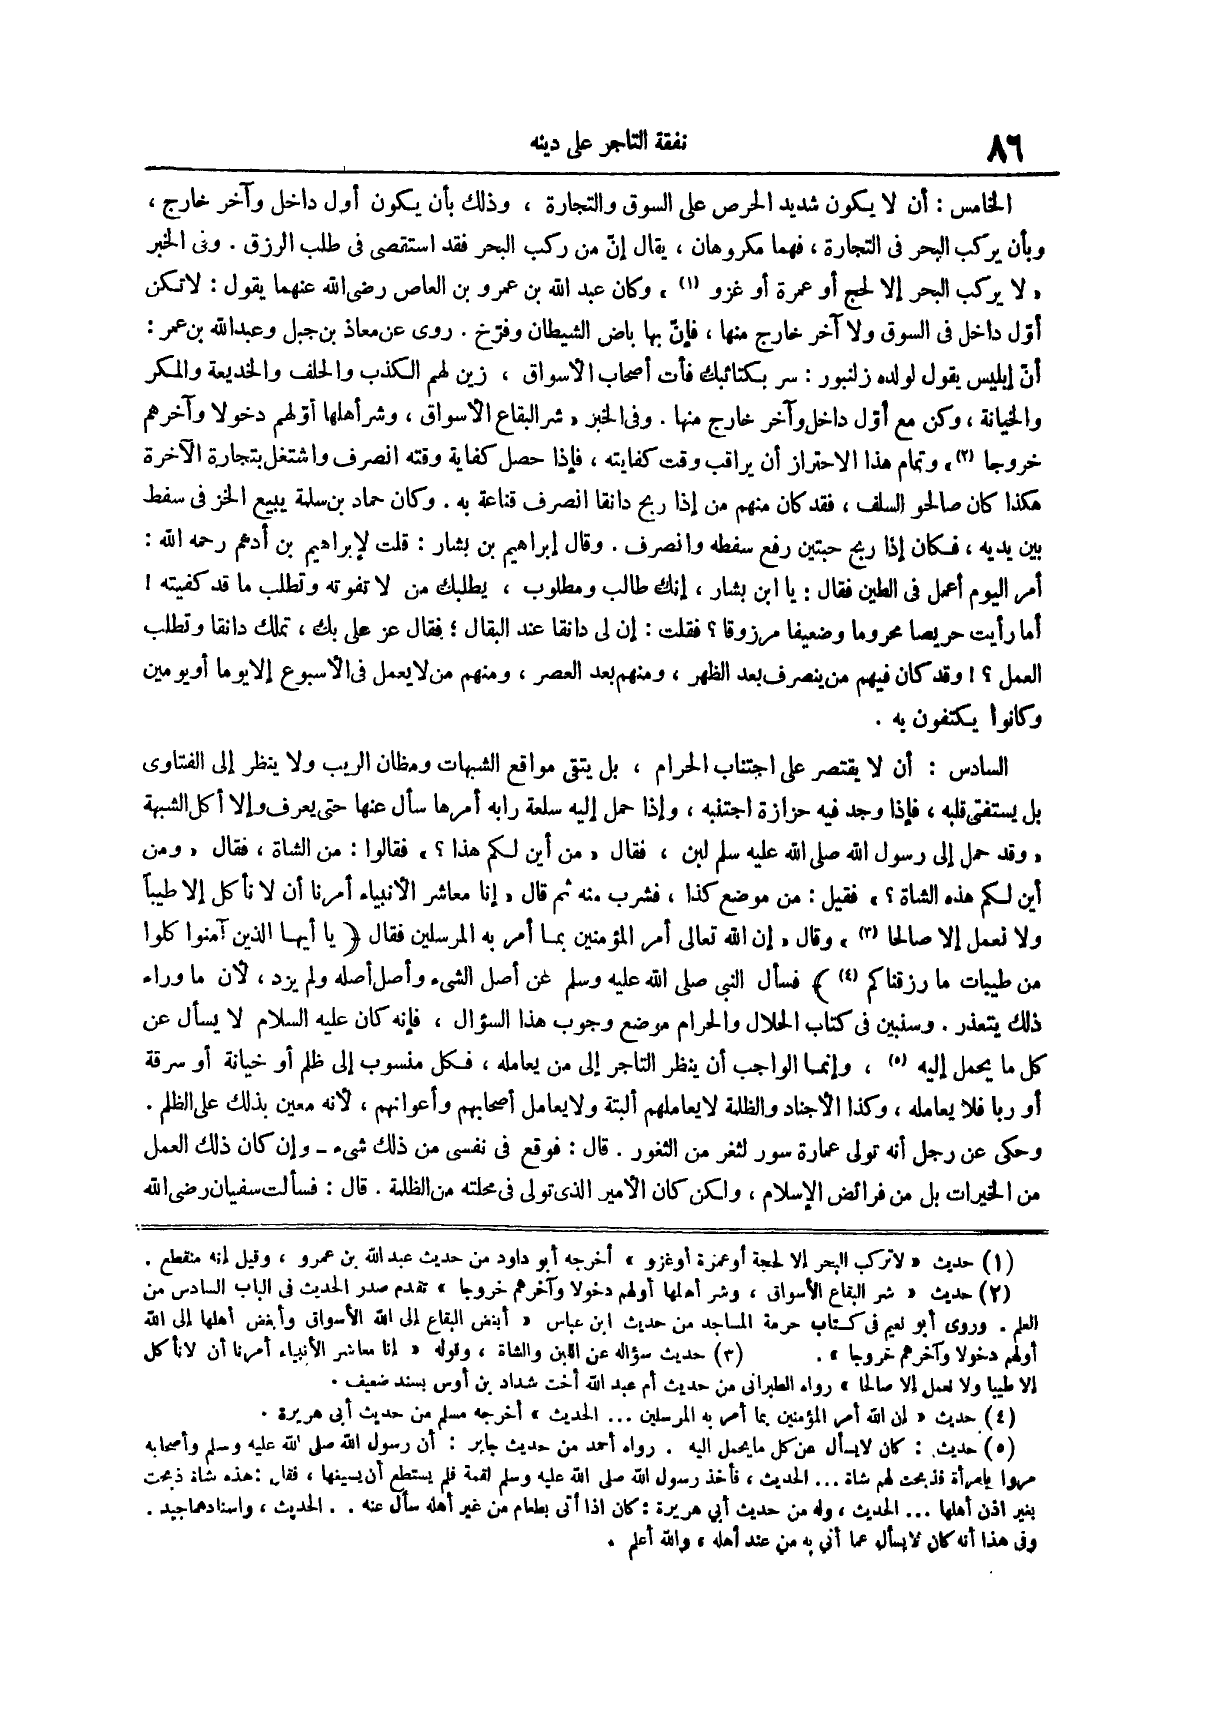 ٨٦
نفقة التاجر على دينه
الخامس : أن لا يكون شديد الحرص على السوق والتجارة ، وذلك بأن يكون أول داخل وآخر خارج ،
وبأن يركب البحر فى التجارة ، فهما مكروهان ، يقال إنّ من ركب البحر فقد استقصى فى طلب الرزق . وفى الخبر
« لا يركب البحر إلا لحج أو عمرة أو غزو (١) » وكان عبد الله بن عمرو بن العاص رضى الله عنهما يقول : لا تكن
أوّل داخل فى السوق ولا آخر خارج منها ، فإنّ بها باض الشيطان وفرّخ . روى عن معاذ بن جبل وعبدالله بن عمر :
أنّ إبليس يقول لولده زلنبور : سر بكتائبك فأت أصحاب الأسواق ، زين لهم الكذب والحلف والخديعة والمكر
والخيانة ، وكن مع أوّل داخل وآخر خارج منها . وفى الخبر « شر البقاع الأسواق ، وشر أهلها أوّلهم دخولا وآخرهم
خروجا (٢) » وتمام هذا الاحتراز أن يراقب وقت كفايته ، فإذا حصل كفاية وقته انصرف واشتغل بتجارة الآخرة
هكذا كان صالحو السلف ، فقد كان منهم من إذا ربح دانقا انصرف قناعة به . وكان حماد بن سلمة يبيع الخز فى سفط
بين يديه ، فكان إذا ربح حبتين رفع سفطه وانصرف . وقال إبراهيم بن بشار : قلت لإبراهيم بن أدهم رحمه الله :
أمر اليوم أعمل فى الطين فقال : يا ابن بشار ، إنك طالب ومطلوب ، يطلبك من لا تفوته وتطلب ما قد كفيته !
أما رأيت حريصا محروما وضعيفا مرزوقا ؟ فقلت : إن لى دانقا عند البقال ؛ فقال عز على بك ، تملك دانقا وتطلب
العمل ؟ ! وقد كان فيهم من ينصرف بعد الظهر ، ومنهم بعد العصر ، ومنهم من لا يعمل فى الأسبوع إلا يوما أو يومين
وكانوا يكتفون به .
السادس : أن لا يقتصر على اجتناب الحرام ، بل يتقى مواقع الشبهات ومظان الريب ولا ينظر إلى الفتاوى
بل يستفتى قلبه ، فإذا وجد فيه حزازة اجتنبه ، وإذا حمل إليه سلعة رابه أمرها سأل عنها حتى يعرف وإلا أكل الشبهة
« وقد حمل إلى رسول الله صلى الله عليه سلم لبن ، فقال « من أين لكم هذا ؟ » فقالوا : من الشاة ، فقال « ومن
أين لكم هذه الشاة ؟ » فقيل : من موضع كذا ، فشرب منه ثم قال « إنا معاشر الأنبياء أمرنا أن لا نأكل إلا طيباً
ولا نعمل إلا صالحا (٣) » وقال « إن الله تعالى أمر المؤمنين بما أمر به المرسلين فقال ﴿ يا أيها الذين آمنوا كلوا
من طيبات ما رزقناكم (٤) ﴾ فسأل النبى صلى الله عليه وسلم عن أصل الشىء وأصل أصله ولم يزد ، لأن ما وراء
ذلك يتعذر . وسنبين فى كتاب الحلال والحرام موضع وجوب هذا السؤال ، فإنه كان عليه السلام لا يسأل عن
كل ما يحمل إليه (٥) ، وإنما الواجب أن ينظر التاجر إلى من يعامله ، فكل منسوب إلى ظلم أو خيانة أو سرقة
أو ربا فلا يعامله ، وكذا الأجناد والظلمة لا يعاملهم ألبتة ولا يعامل أصحابهم وأعوانهم ، لأنه معين بذلك على الظلم .
وحكى عن رجل أنه تولى عمارة سور لثغر من الثغور . قال : فوقع فى نفسى من ذلك شىء - وإن كان ذلك العمل
من الخيرات بل من فرائض الإسلام ، ولكن كان الأمير الذى تولى فى محلته من الظلمة . قال : فسألت سفيان رضى الله
(١) حديث « لا تركب البحر إلا لحجة أو عمرة أو غزو » أخرجه أبو داود من حديث عبد الله بن عمرو ، وقيل إنه منقطع .
(٢) حديث « شر البقاع الأسواق ، وشر أهلها أولهم دخولا وآخرهم خروجا » تقدم صدر الحديث فى الباب السادس من
العلم . وروى أبو نعيم فى كتاب حرمة المساجد من حديث ابن عباس « أبغض البقاع إلى الله الأسواق وأبغض أهلها إلى الله
أولهم دخولا وآخرهم خروجا » . (٣) حديث سؤاله عن اللبن والشاة ، وقوله « إنا معاشر الأنبياء أمرنا أن لا نأكل
إلا طيبا ولا نعمل إلا صالحا » رواه الطبرانى من حديث أم عبد الله أخت شداد بن أوس بسند ضعيف .
(٤) حديث « إن الله أمر المؤمنين بما أمر به المرسلين ... الحديث » أخرجه مسلم من حديث أبى هريرة .
(٥) حديث : كان لا يسأل عن كل ما يحمل إليه . رواه أحمد من حديث جابر : أن رسول الله صلى الله عليه وسلم وأصحابه
مروا بامرأة فذبحت لهم شاة ... الحديث ، فأخذ رسول الله صلى الله عليه وسلم لقمة فلم يستطع أن يسيغها ، فقال : هذه شاة ذبحت
بغير اذن أهلها ... الحديث ، وله من حديث أبي هريرة : كان اذا أتى بطعام من غير أهله سأل عنه . . الحديث ، واسنادهما جيد .
وفى هذا أنه كان لا يسأل عما أتي به من عند أهله ، والله أعلم .